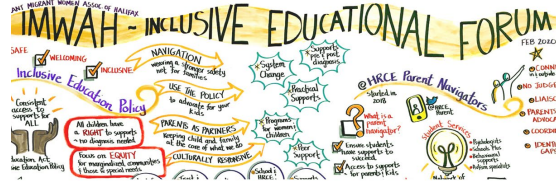 ANT MIGRANT WOMEN ASSOC OF HALIFAX
IMWAH ~ INCLUSIVE EDUCATIONAL FORUM
FEB 2020
SAFE
WELCOMING
INCLUSIVE
Inclusive Education Policy
Consistent
access to
supports for
ALL
ucation Act
ive Education Policy
All children have
a RIGHT to supports
- no diagnosis needed
Focus on EQUITY
for marginalized communities
& those & special needs
NAVIGATION
weaving a stronger safety
net for families
USE THE POLICY
to advocate for your
kids
PARENTS AS PARTNERS
Keeping child and family
at the core of what we do
CULTURALLY RESPONSIVE
System
Change
Supports
pre & post
diagnosis
Practical
Supports
Programs
for women &
children
Peer
Support
School &
HRCE
@HRCE Parent Navigators
Started in
2018
@HRCE
Parent
What is a
parent
navigator?
Ensure students
have supports to
succeed
Access to supports
for parents & kids
Student Services
Psychologists
Schools Plus
Behavioural
supports
Autism specialists
CONN
NO JUDGE
LIAIS
PARENTS
ADVOCA
COORD
IDENTI
GAPS